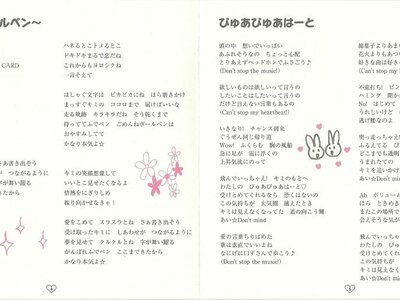 ルペン〜
ハネるとことトメるとこ
ドキドキまるで恋だね
CARD
これからもヨロシクね
一言そえて
はしゃぐ文字は ピカピカにね ほら磨きかけ
まっすぐキミの ココロまで 届けばいいな
走る軌跡 キラキラだね そう乾くまで
待っててふでペン ごめんねボールペンは
おやすみしてて
かなり本気よ☆
さあ書き出そう
つながるように
字が舞い躍る
きたから
キミの笑顔想像して
いいとこ見せたくなるよ
情熱をにぎりしめ
振り向かせなきゃ！
愛をこめて スラスラとね さあ書き出そう
受け取ったキミに しあわせが つながるように
夢を見せて クルクルとね 字が舞い躍る
がんばれふでペン ここまできたから
かなり本気よ☆
ぴゅあぴゅあはーと
頭の中 想いでいっぱい
あふれそうなの ちょっと心配
とりあえずヘッドホンでふさごう♪
(Don't stop the music!)
欲しいものは欲しいって言うの
したいことはしたいって言うの
だけど言えない言葉もあるの
(Can't stop my heartbeat!)
いきなり! チャンス到来
ぐうぜん同じ帰り道
Wow! ふくらむ 胸の風船
急に足が 宙に浮くの
上昇気流にのって
飛んでいっちゃえ! キミのもとへ
わたしの ぴゅあぴゅあはーと♡
受けとめてくれるなら 恐くはないの
この気持ちが 大気圏 越えたとき
キミは見えなくなった 道の向こう側
あぃ☆Don't mind
愛の言葉ちりばめた
歌は素直でいいよね
なにげに口ずさんで歩こう♪
(Don't stop the music!)
綿菓子より
花火よりも
好きな曲は好き
(Can't stop my
不意打ち!
ハミング
No! はじめて
うれしいけど
逃げ腰なのよ
突っ走っちゃえ
ふるえてる
どこまでも透明
うたまれて
キミを追いかけ
あぃ☆Don't
Ah ボリューム
はちきれ
またこの場所で
会えたなら
飛んでいっちゃ
わたしの
受けとめてくれ
この気持ちが
キミが見え
あぃ☆Don't